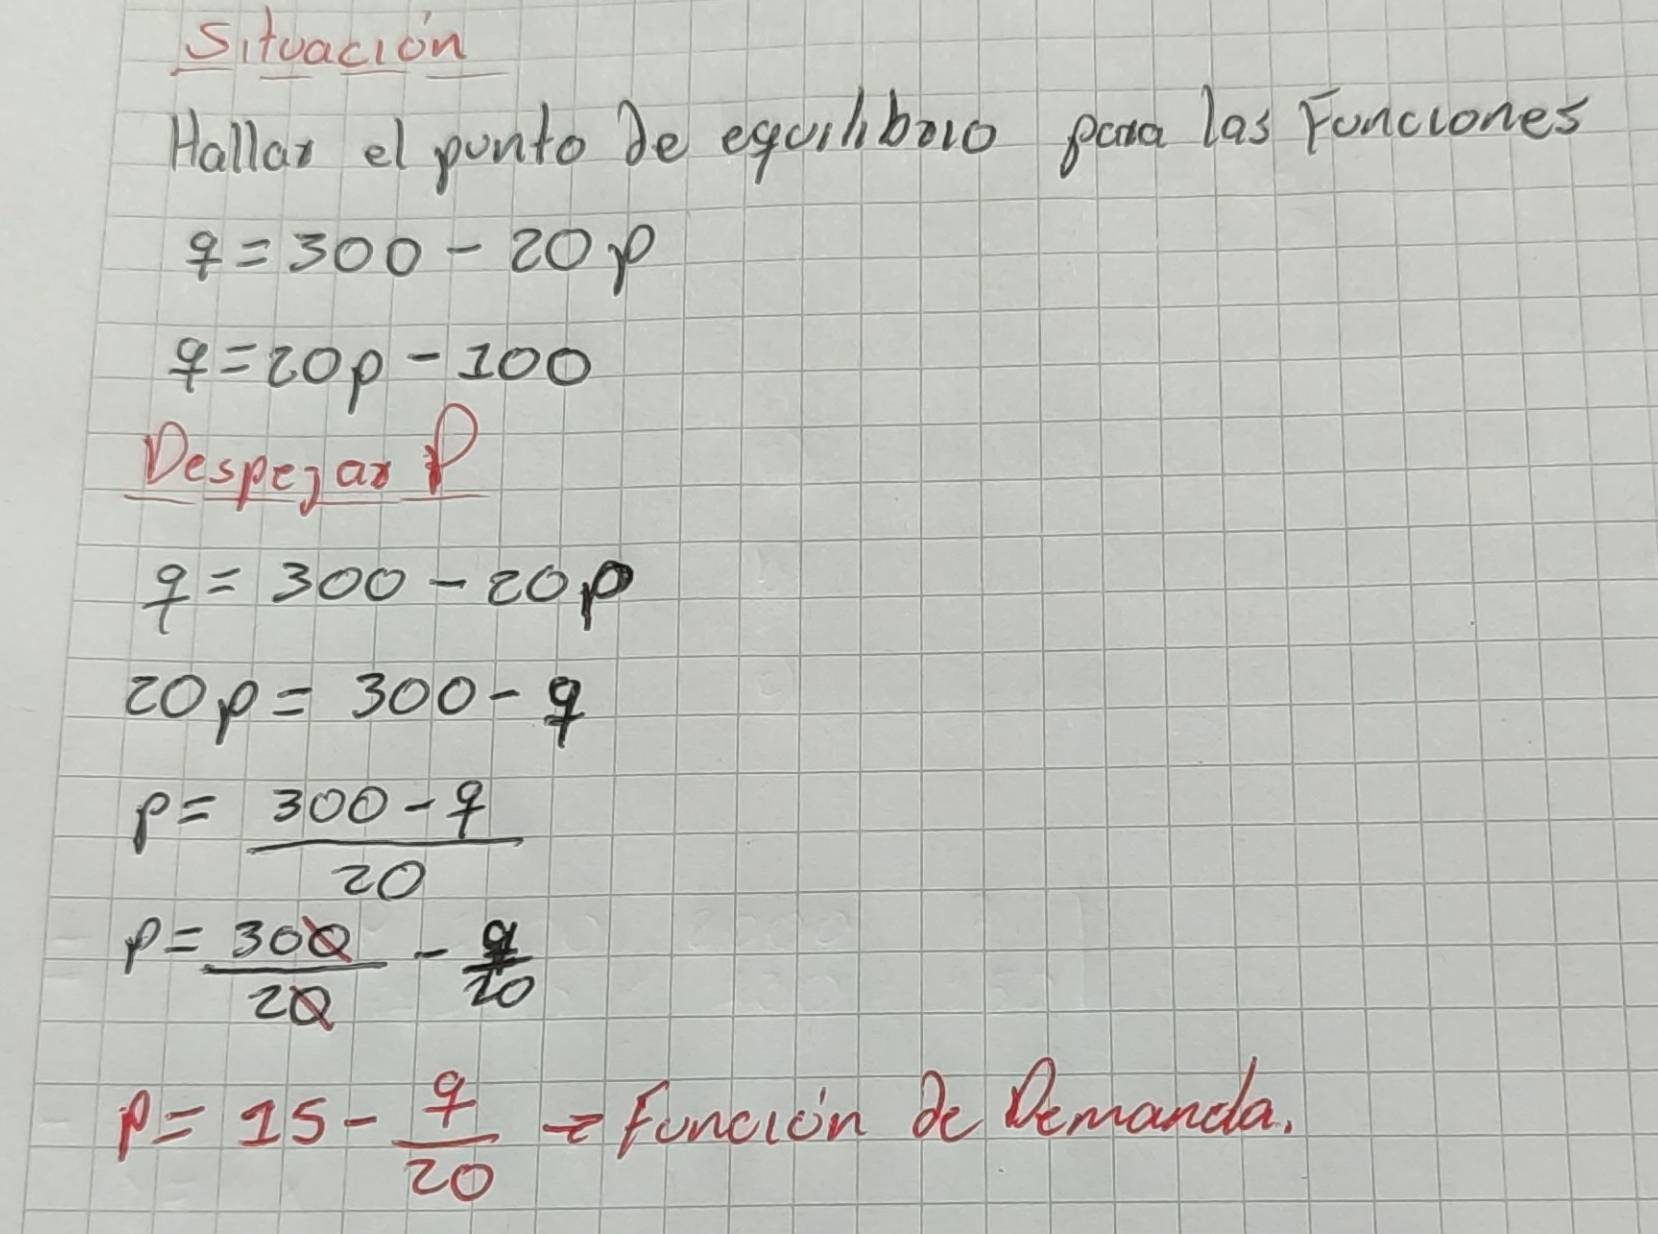 Situación
Hallar el punto de equilibrio para las Funciones
q = 300 - 20p
q = 20p - 100
Despejar P
q = 300 - 20p
20p = 300 - q
p = 300 - q
20
p = 300 - q
20 20
p = 15 - q → Función de Demanda.
20